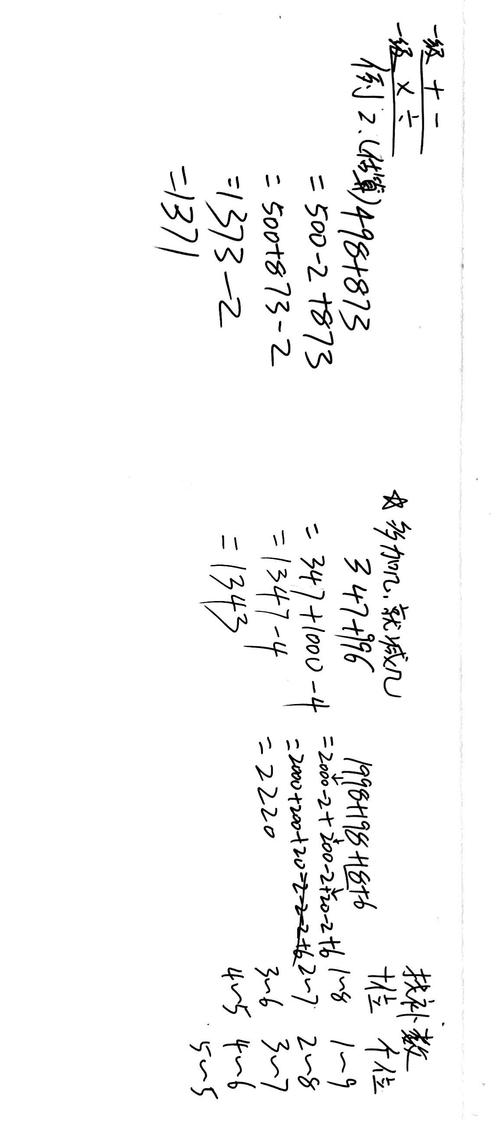 一级 + 一
一级 × ÷
例2.(估算)498+873
=500-2+873
=500+873-2
=1373-2
=1371
☆多加几,就减几
347+996
=347+1000-4
=1347-4
=1343
1998+198+18+6
=2000-2+200-2+20-2+6
=2000+200+20-2-2-2+6
=2220
找补数
十位 个位
1~8 1~9
2~7 2~8
3~6 3~7
4~5 4~6
5~5